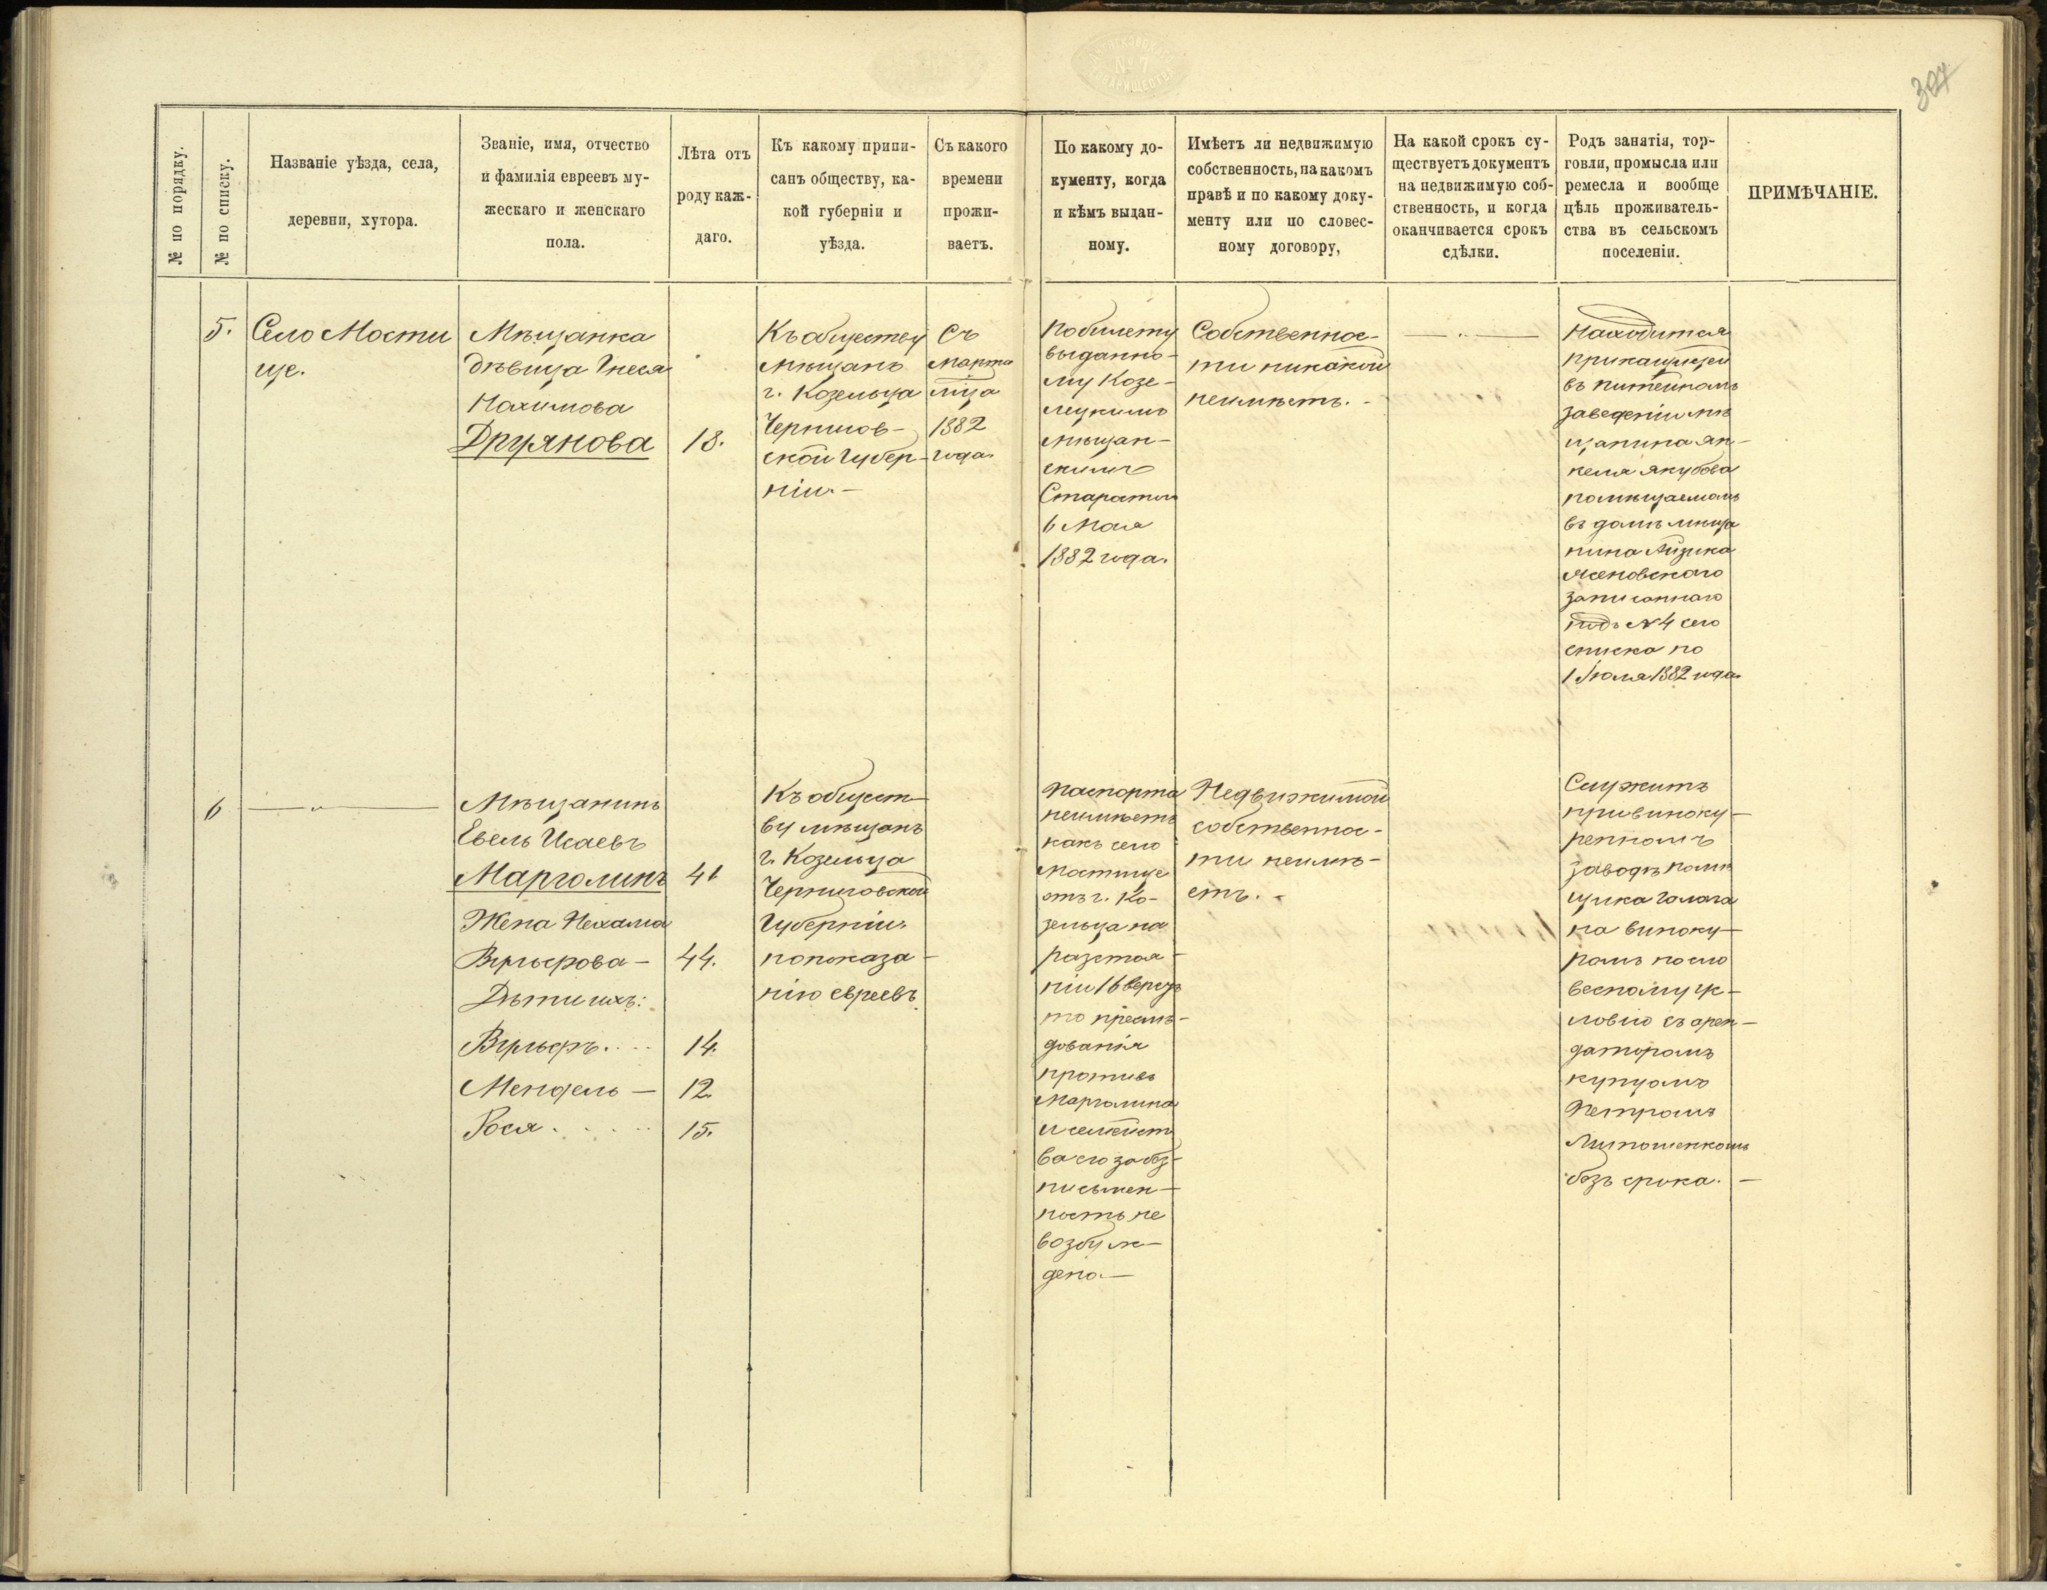 304
№ по порядку.
№ по списку.
Названіе уѣзда, села,
деревни, хутора.
Званіе, имя, отчество
и фамилія евреевъ му-
жескаго и женскаго
пола.
Лѣта отъ
роду каж-
даго.
Къ какому припи-
санъ обществу, ка-
кой губерніи и
уѣзда.
Съ какого
времени
прожи-
ваетъ.
По какому до-
кументу, когда
и кѣмъ выдан-
ному.
Имѣетъ ли недвижимую
собственность, на какомъ
правѣ и по какому доку-
менту или по словес-
ному договору,
На какой срокъ су-
ществуетъ документъ
на недвижимую соб-
ственность, и когда
оканчивается срокъ
сдѣлки.
Родъ занятія, тор-
говли, промысла или
ремесла и вообще
цѣль проживатель-
ства въ сельскомъ
поселеніи.
ПРИМѢЧАНІЕ.
5.
Село Мости
ще.
Мѣщанка
дѣвица Гнеся
Нахимова
Друянова
18.
Къ обществу
мѣщанъ
г. Козельца
Чернигов-
ской Губер-
ніи. —
Съ
марта
м‍ца
1882
года.
По билету
выданно-
му Козе-
лецкимъ
мѣщан-
скимъ
Старостой
6 Мая
1882 года.
Собственнос-
ти никакой
неимѣетъ. -
— „ —
Находится
прикащицей
въ питейномъ
заведеніи мѣ
щанина Ян-
келя Якубова
помѣщаемомъ
въ домѣ мѣща
нина Айзика
Ясеновскаго
записаннаго
подъ № 4 сего
списка по
1 Іюля 1882 года.
6
— „ —
Мѣщанинъ
Евель Исаевъ
Марголинъ
41
Жена Нехама
Вульфова —
44.
Дѣти ихъ:
Вульфъ. . . .
14.
Мендель —
12.
Рося . . . . .
15.
Къ общест-
ву мѣщанъ
г. Козельца
Черниговской
Губерніи.
по показа-
нію евреевъ.
Паспорта
неимѣетъ
какъ село
Мостище
отъ г. Ко-
зельца на
разстоя-
ніи 16 верстъ
то преслѣ-
дованія
противъ
Марголина
и семейст
ва его за без-
письмен-
ность не
возбуж-
дено. —
Недвижимой
собственнос-
ти неимѣ-
етъ. -
Служитъ
при виноку-
ренномъ
заводѣ помѣ
щика Галага
на виноку-
ромъ по сло
весному ус-
ловію съ арен-
даторомъ
купцомъ
Петромъ
Литошенкомъ
безъ срока. —